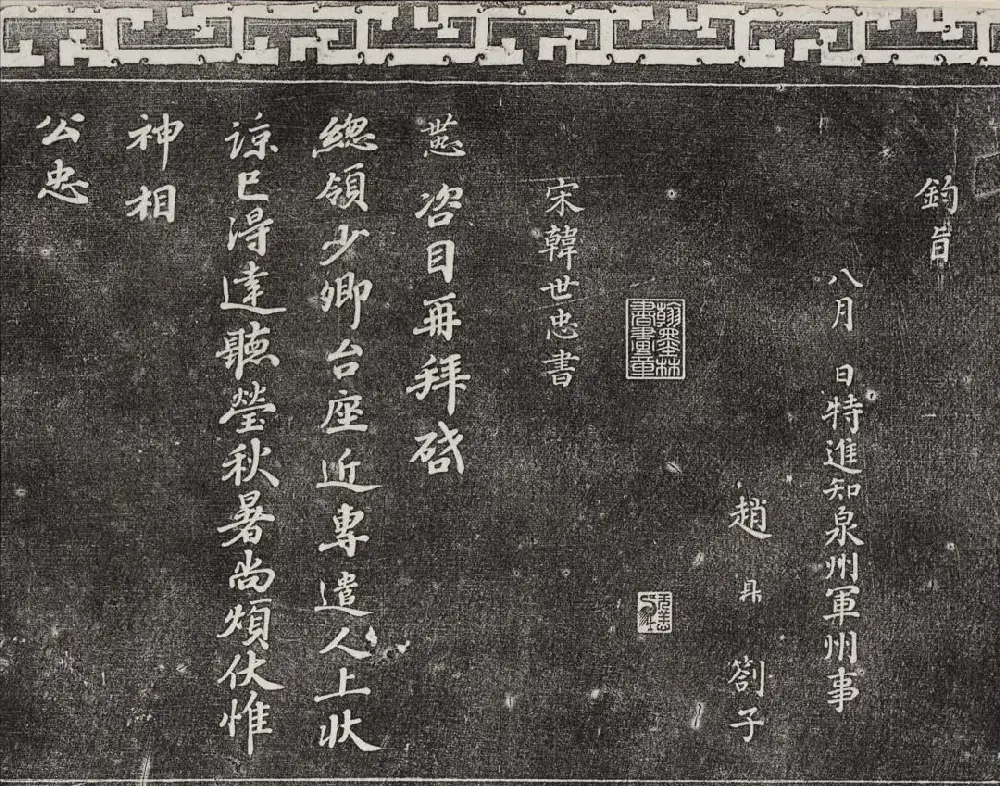 鈞旨
八月 日特進知泉州軍州事
趙鼎劄子
翰墨林書畫章
宋韓世忠書
世忠 咨目再拜啓
總領少卿台座近專遣人上狀
諒已得達聽瑩秋暑尚煩伏惟
神相
公忠